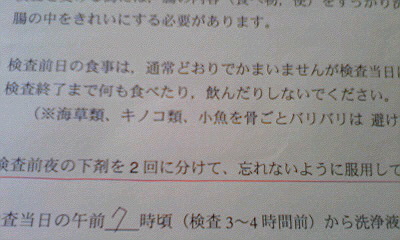 腸の中をきれいにする必要があります。
検査前日の食事は，通常どおりでかまいませんが検査当日に
検査終了まで何も食べたり，飲んだりしないでください。
（※海草類、キノコ類、小魚を骨ごとバリバリは 避け
検査前夜の下剤を2回に分けて、忘れないように服用して
査当日の午前7時頃（検査3〜4時間前）から洗浄液